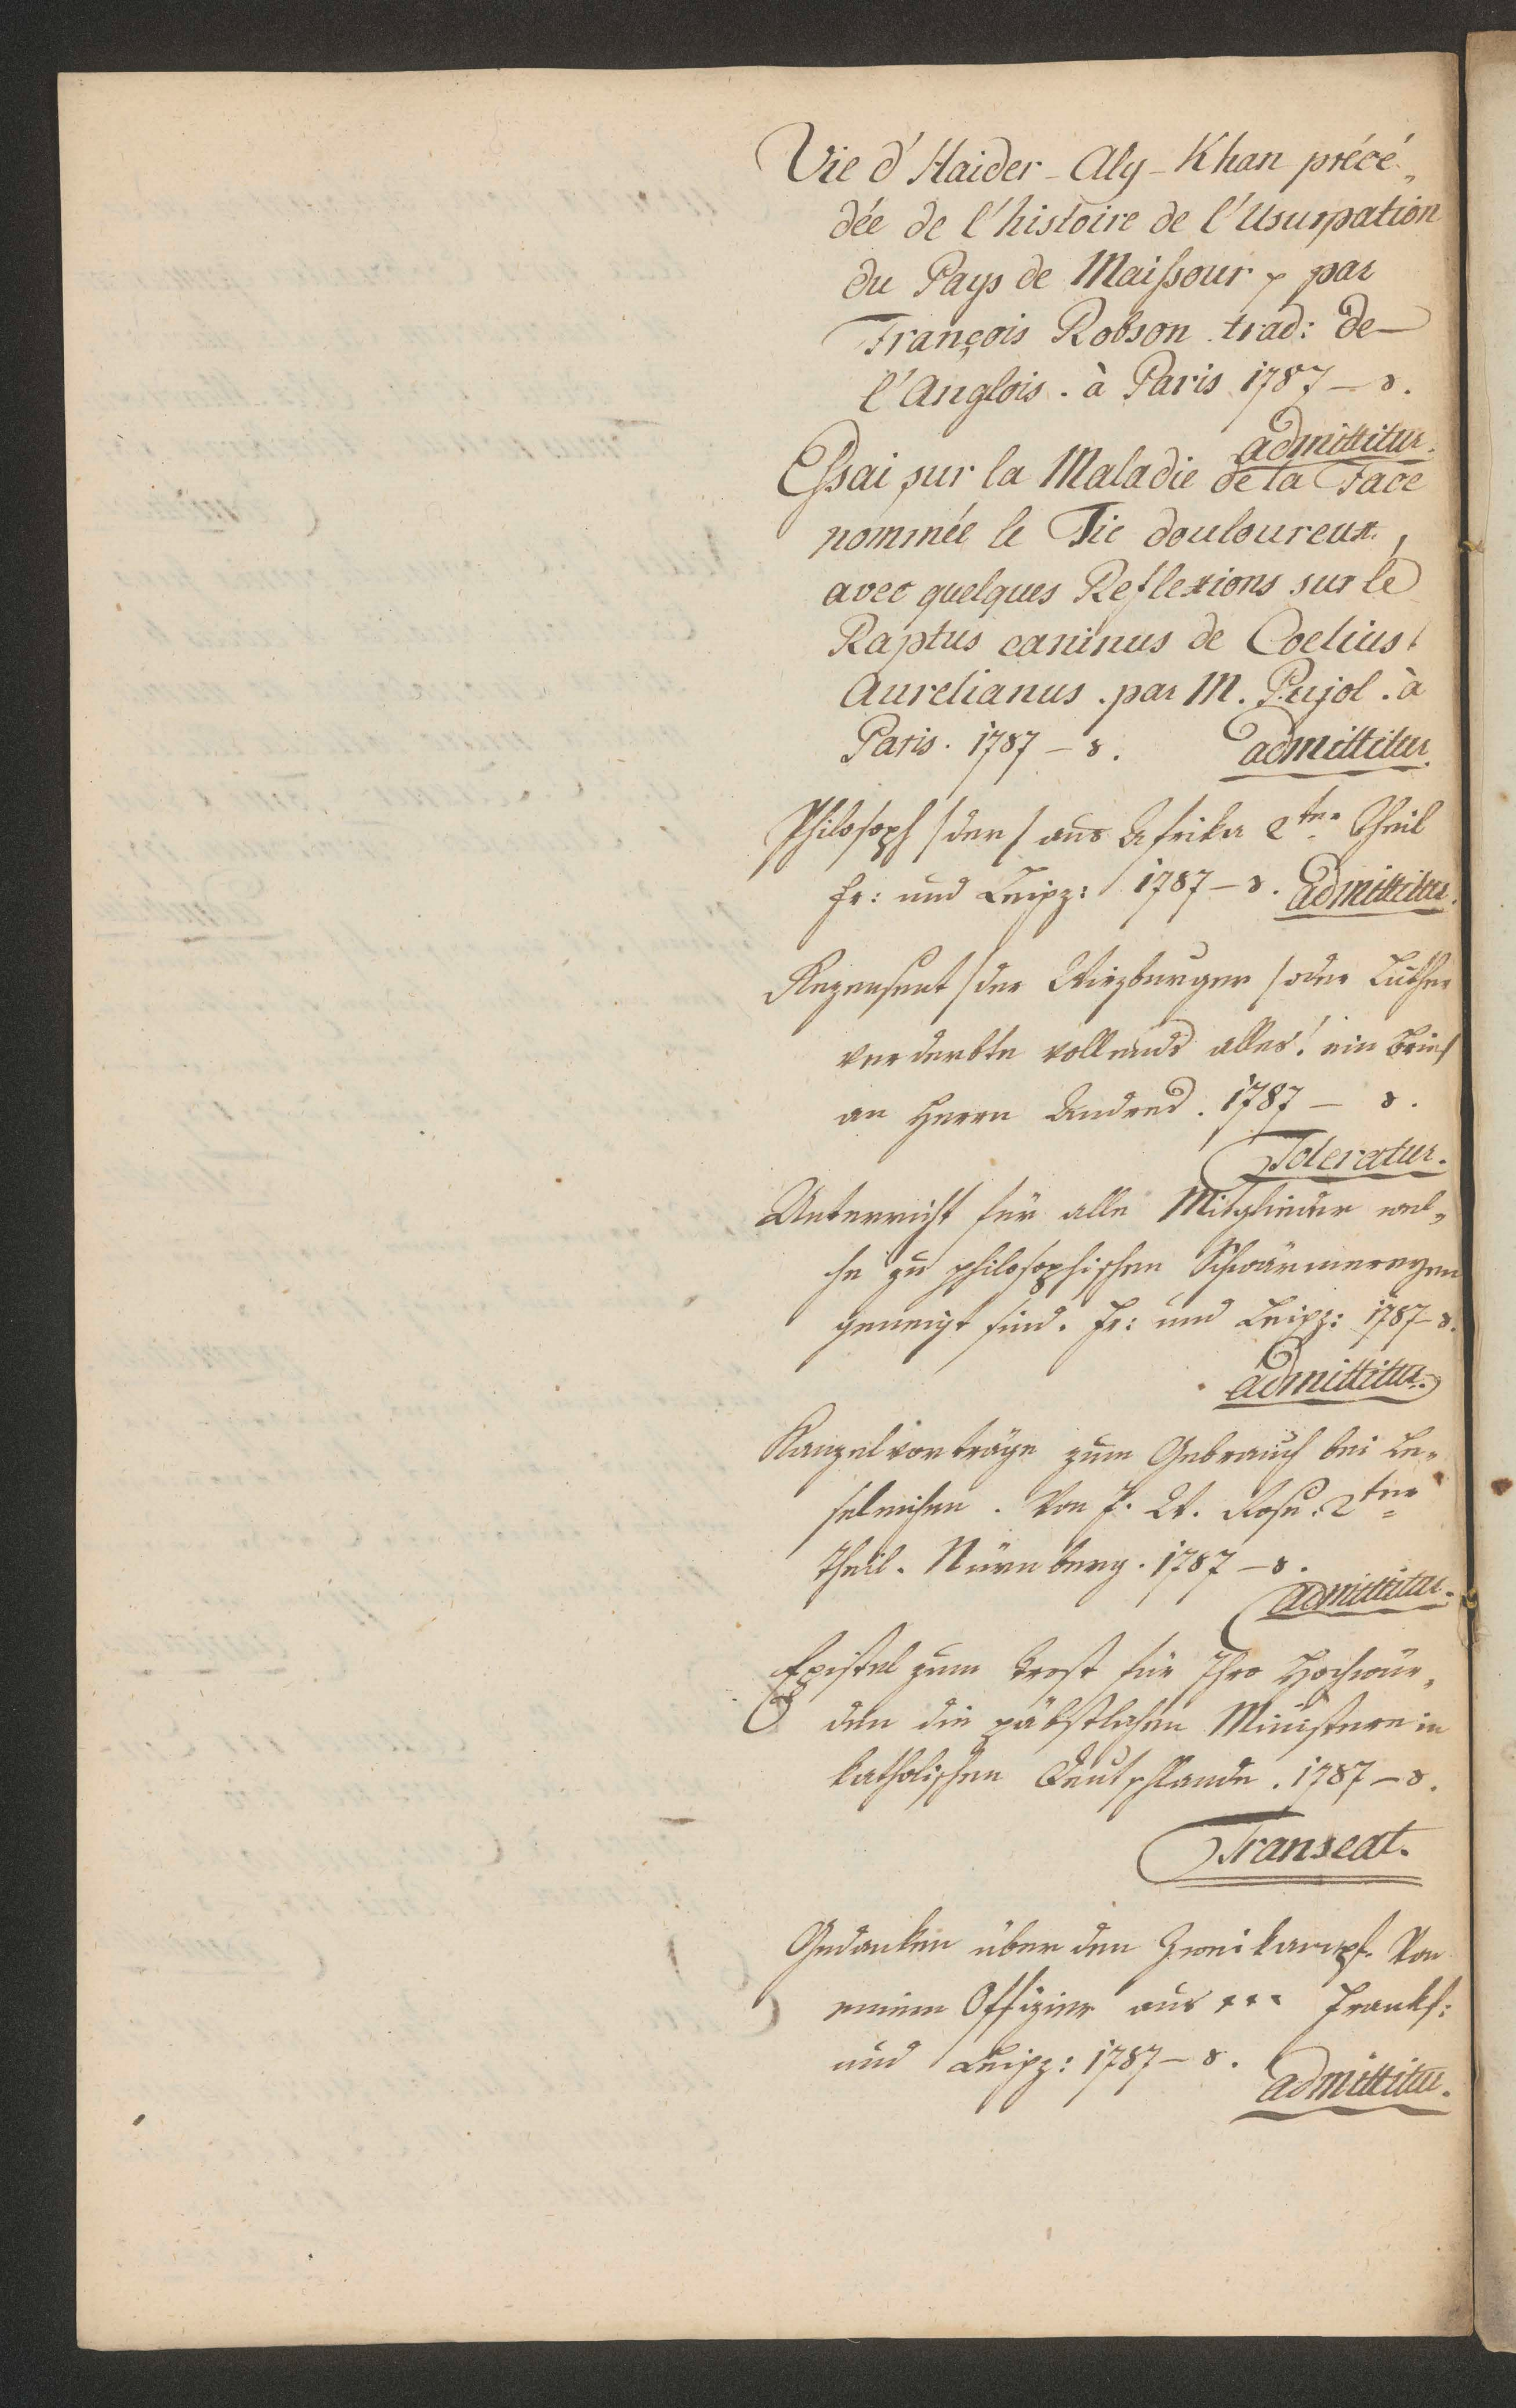 Vie d'Haider-Aly-Khan précé„
dée de l'histoire de l'Usurpation
du Pays de Maissour par
François Robson trad: de
l'Anglois. à Paris 1787 – 8.
admittitur.
Essai sur la Maladie de la Face
nommée le Tic douloureux,
avec quelques Reflexions sur le
Raptus caninus de Coelius
Aurelianus. par M. Pujol. à
Paris. 1787 – 8. admittitur.
Philosoph /der/ aus Afrika 2ter Theil
Fr: und Leipz: 1787 – 8. admittitur.
Rezensent /der Wirzburger/ oder Luther
verderbte vollends alles! ein Brief
an Herrn Andres. 1787 – 8.
Toleratur.
Unterricht für alle Mitglieder wel„
che zu philosophischen Schwärmereyen
geneigt sind. Fr: und Leipz: 1787 – 8.
admittitur.
Kanzelvorträge zum Gebrauch bei Le„
seleichen. Von J. W. Rose. 2ter
Theil. Nürnberg. 1787 – 8.
admittitur.
Epistel zum Trost für Ihro Hochwür„
den die päbstlichen Ministere in
katholischen Deutschlande. 1787 – 8.
Transeat.
Gedanken über den Zweikampf. Von
einem Offizier aus *** Frankf:
und Leipz: 1787 – 8.
admittitur.